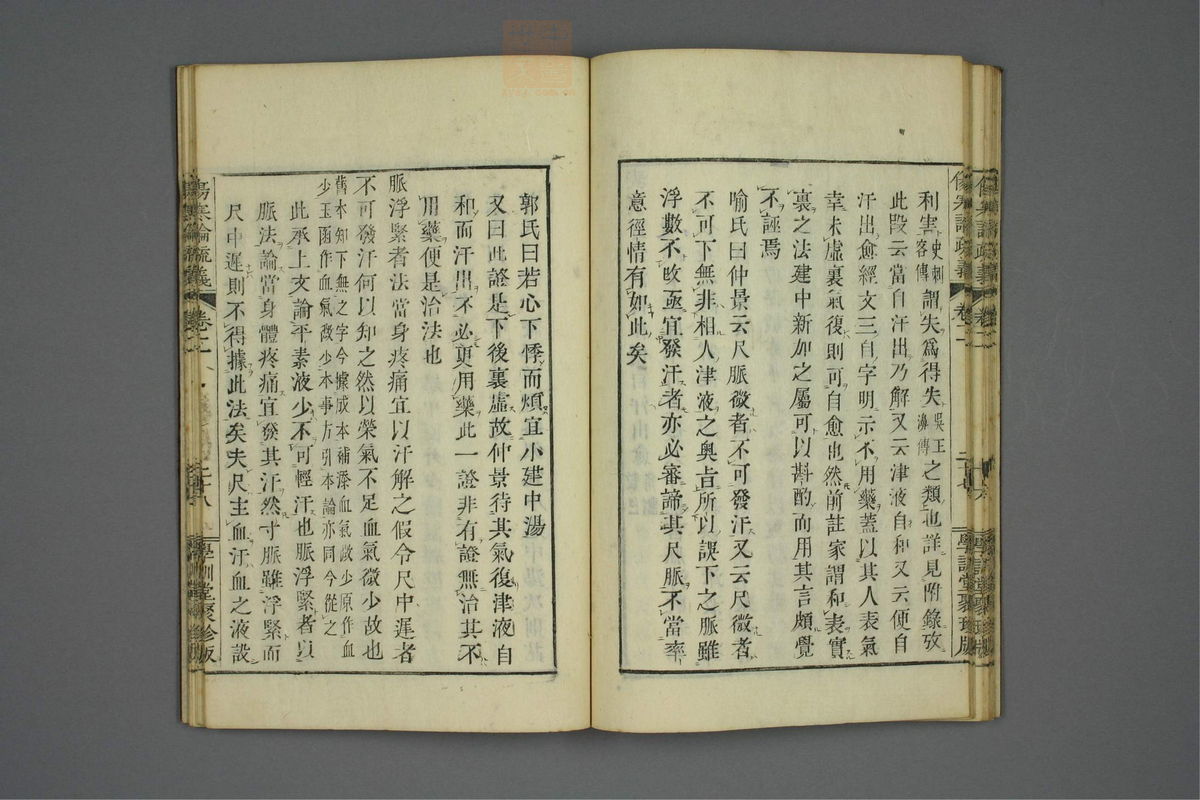 利害史刺客傳謂失爲得失吳王濞傳之類也詳見附錄攷
此段云當自汗出乃解又云津液自和又云便自
汗出愈經文三自字明示不用藥蓋以其人表氣
幸未虛裏氣復則可自愈也然前註家謂和表實
裏之法建中新加之屬可以斟酌而用其言頗覺
不誣焉
喻氏曰仲景云尺脈微者不可發汗又云尺微者
不可下無非相人津液之奧旨所以誤下之脈雖
浮數不改亟宜發汗者亦必審諦其尺脈不當率
意徑情有如此矣
郭氏曰若心下悸而煩宜小建中湯
又曰此證是下後裏虛故仲景待其氣復津液自
和而汗出不必更用藥此一證非有證無治其不
用藥便是治法也
脈浮緊者法當身疼痛宜以汗解之假令尺中遲者
不可發汗何以知之然以榮氣不足血氣微少故也
舊本知下無之字今據成本補添血氣微少原作血
少玉函作血氣微少本事方引本論亦同今從之
此承上文論平素液少不可輕汗也脈浮緊者以
脈法論當身體疼痛宜發其汗然寸脈雖浮緊而
尺中遲則不得據此法矣夫尺主血汗血之液設
傷寒論疏義
卷二
學訓堂聚珍版